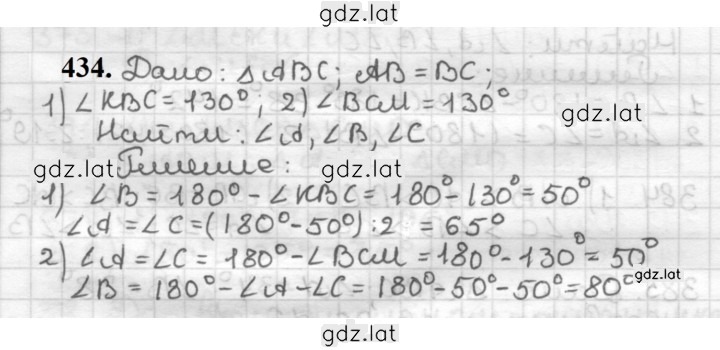 gdz.lat
434. Дано: △ABC; AB = BC;
1) ∠KBC = 130°; 2) ∠BCM = 130°
gdz.lat
Найти: ∠A, ∠B, ∠C
gdz.lat Решение: gdz.lat
1) ∠B = 180° - ∠KBC = 180° - 130° = 50°
∠A = ∠C = (180° - 50°) : 2 = 65°
2) ∠A = ∠C = 180° - ∠BCM = 180° - 130° = 50°
gdz.lat
∠B = 180° - ∠A - ∠C = 180° - 50° - 50° = 80°
gdz.lat